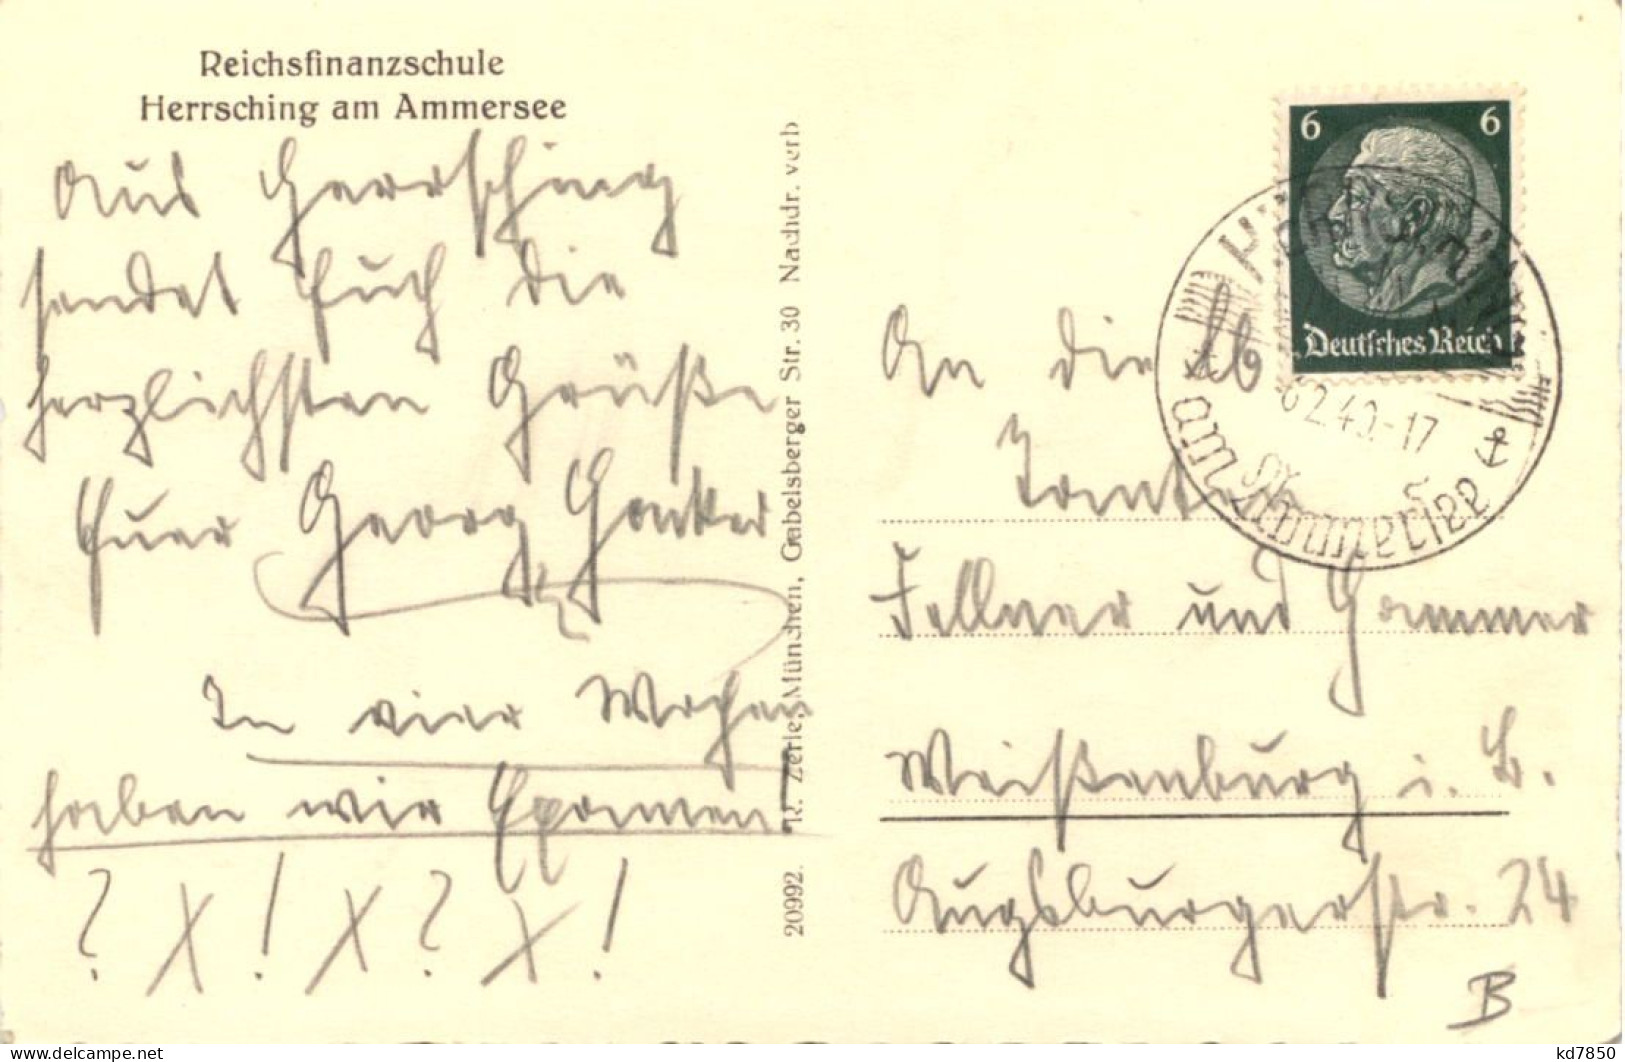 Reichsfinanzschule
Herrsching am Ammersee
Aus Herrsching
sendet Euch die
herzlichsten Grüße
Euer Georg
In vier Wochen
haben wir Examen!
? X ! X ? X !
20992. R. Zerle, München, Gabelsberger Str. 30 Nachdr. verb
6 6
Deutsches Reich
6.2.40.-17
am Ammersee
An die lb.
Fellner und Hammer
Weißenburg i. B.
Augsburgerstr. 24
B
kd7850